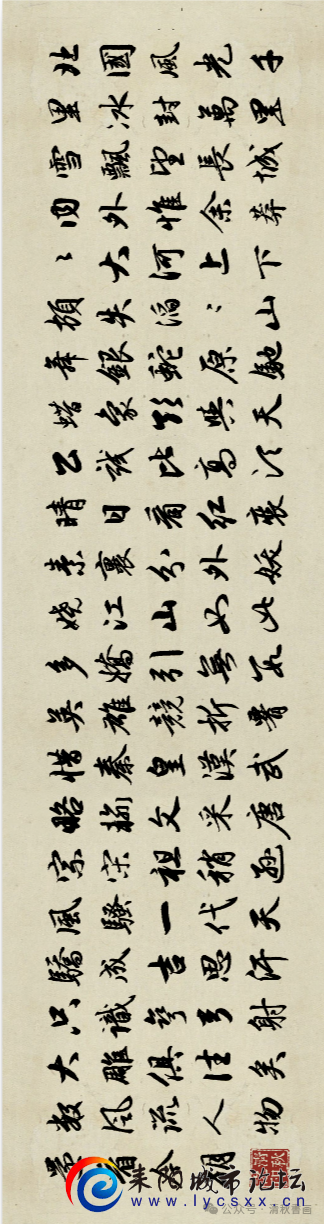 北國風光千
里冰封萬里
雪飄望長城
内外惟余莽
々大河上下
頓失滔々山
舞銀蛇原馳
蜡象欲與天
公試比高須
晴日看紅裝
素裹分外妖
娆江山如此
多嬌引無數
英雄競折腰
惜秦皇漢武
略輸文采唐
宗宋祖稍遜
風騷一代天
驕成吉思汗
只識彎弓射
大雕俱往矣
數風流人物
今朝
耒阳城市论坛
www.lycsxx.cn
公众号·清秋書画